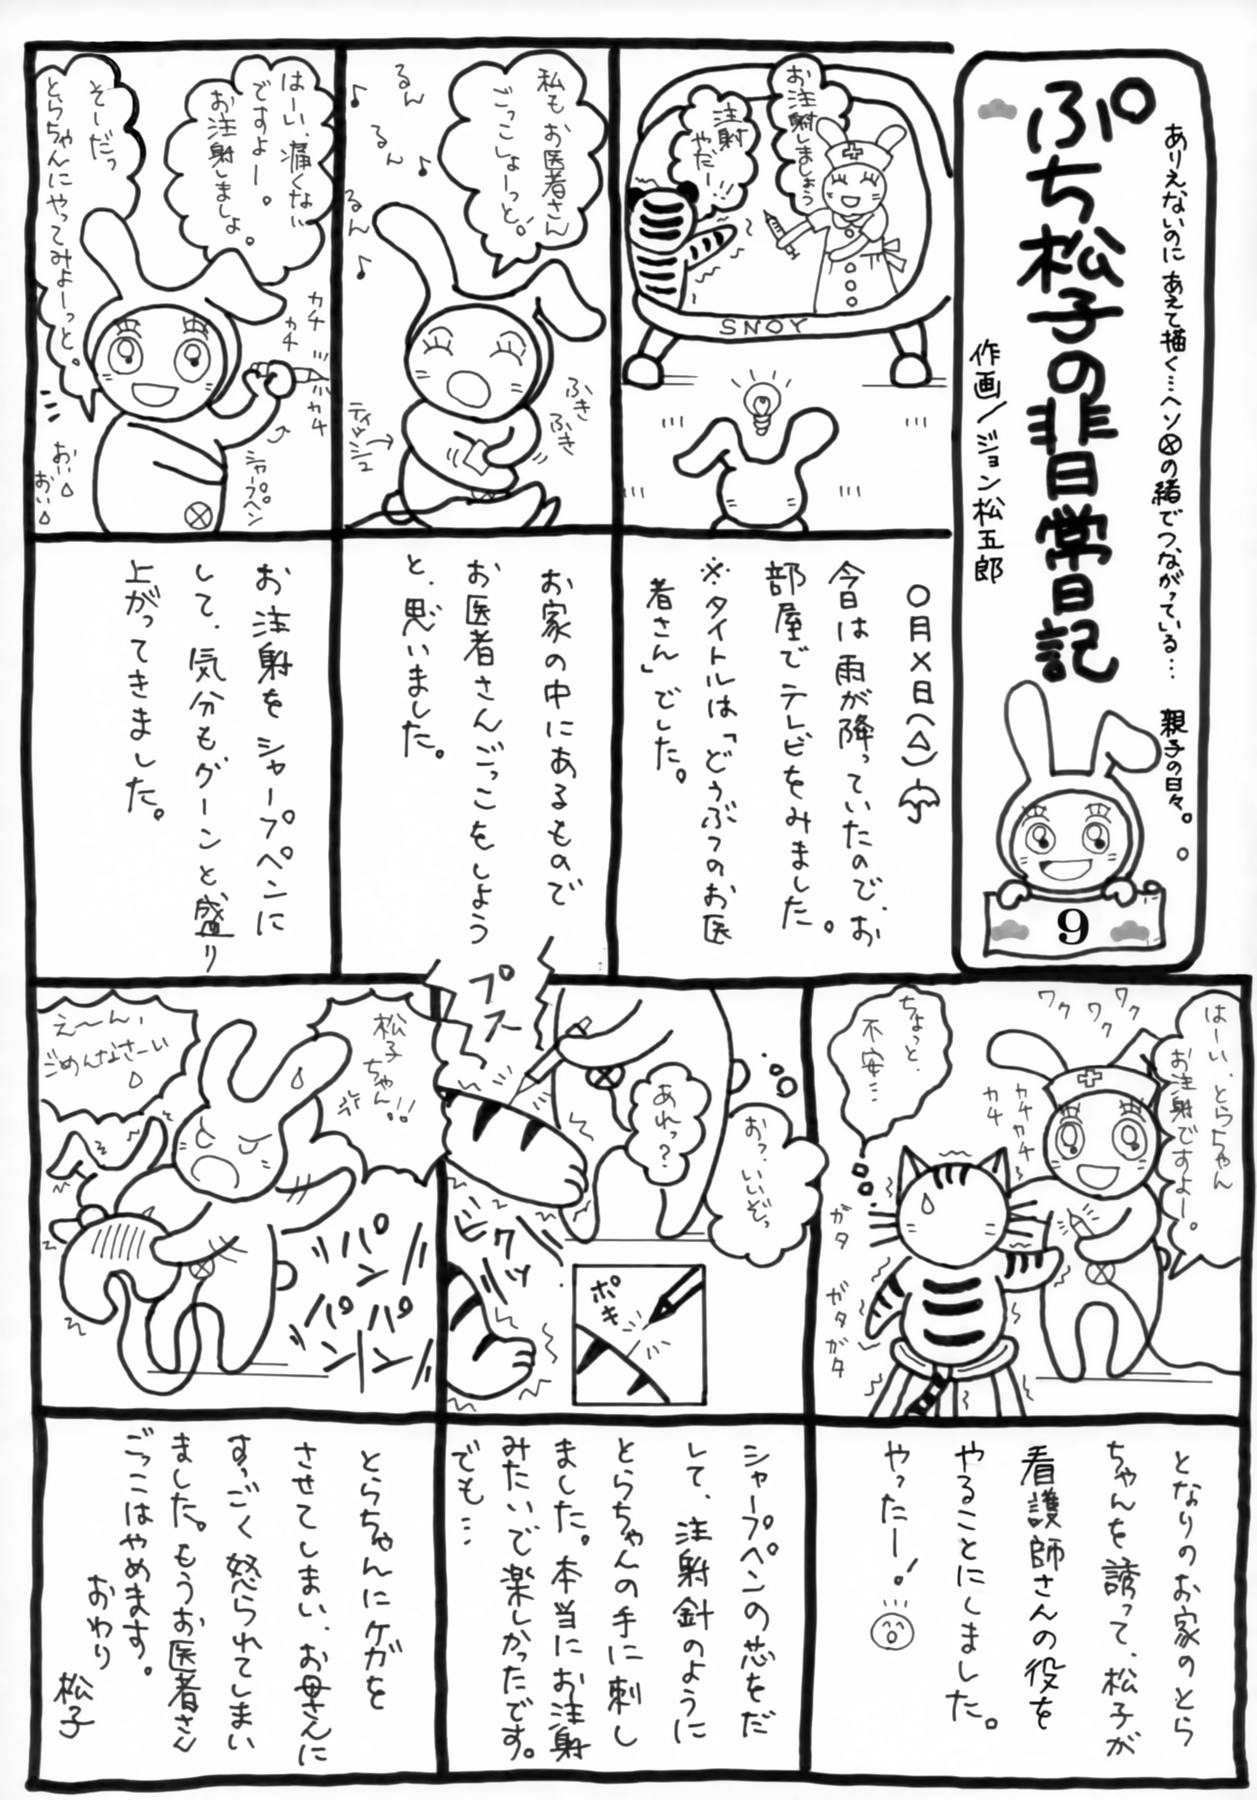 ありえないのに あえて描く…ヘソ⊗の緒でつながっている… 親子の日々。
ぷち松子の非日常日記
作画/ジョン松五郎
9
お注射しましょう
注射
やだー!!
SNOY
〇月×日(△)
今日は雨が降っていたので、お
部屋でテレビをみました。
※タイトルは「どうぶつのお医
者さん」でした。
私もお医者さん
ごっこしよーっと。
るん
るん
るん
ふき
ふき
ティッシュ
お家の中にあるもので
お医者さんごっこをしよう
と、思いました。
はーい、痛くない
ですよー。
お注射しましょ。
そーだっ
とらちゃんにやってみよーっと。
カチ
カチ
カチ
シャープペン
おい
おい
お注射をシャープペンに
して、気分もグーンと盛り
上がってきました。
はーい、とらちゃん
お注射ですよー。
ワク
ワク
ワク
カチ
カチ
カチ
ちょっと、
不安…
ガタ
ガタ
ガタ
となりのお家のとら
ちゃんを誘って、松子が
看護師さんの役を
やることにしました。
やったー!
おっ、いいぞっ
あれっ?
プスー
ビクッ
ポキ
シャープペンの芯をだ
して、注射針のように
とらちゃんの手に刺し
ました。本当にお注射
みたいで楽しかったです。
でも…
松子
ちゃん!!
え〜ん、
ごめんなさーい
パン
パン
パーン
とらちゃんにケガを
させてしまい、お母さんに
すっごく怒られてしまい
ました。もうお医者さん
ごっこはやめます。
おわり
松子